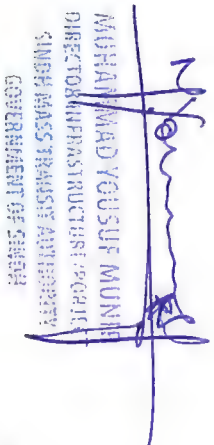 MUHAMMAD YOUSUF MUNIR
DIRECTOR INFRASTRUCTURE
SINDH MASS TRANSIT AUTHORITY
GOVERNMENT OF SINDH